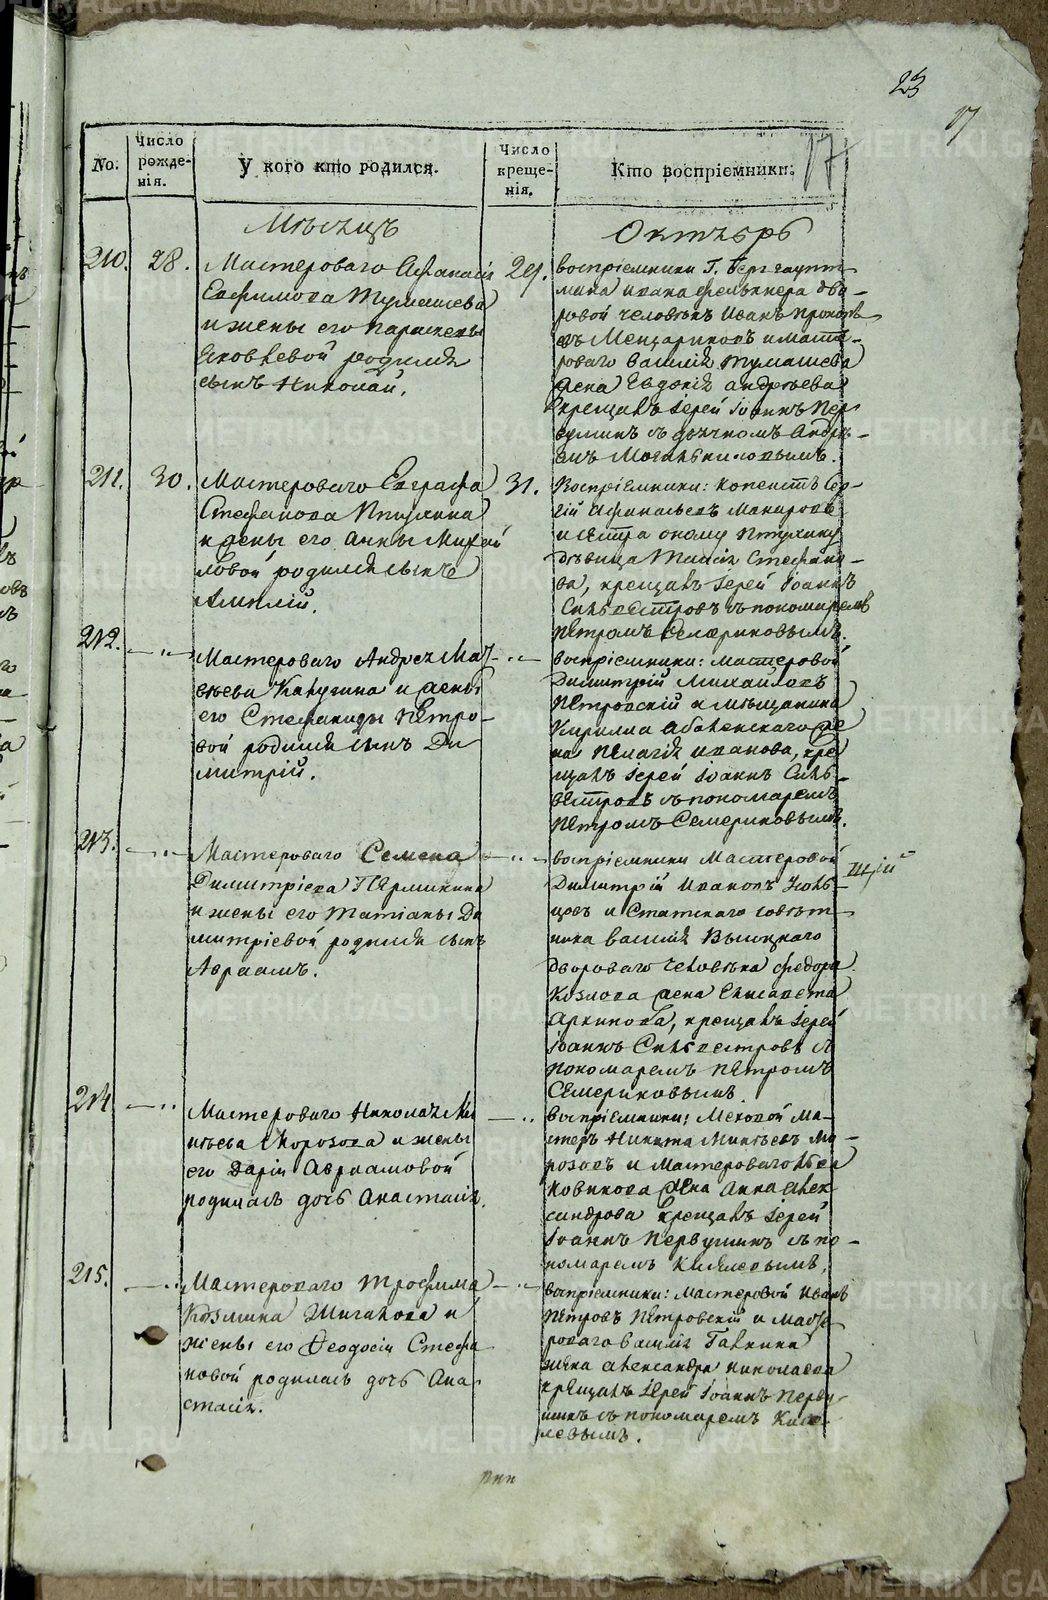 23
17
17
No.
Число рожденія.
У кого кто родился.
Число крещенія.
Кто воспріемники.
Мѣсяцъ
Октябрь
210.
28.
Мастероваго Афанасія
Евфимова Тумашева
и жены его Параскевы
Яковлевой родился
сынъ Николай.
29.
воспріемники Г. Берггаупт-
мана Ивана Фелькнера дво-
ровой человѣкъ Иванъ Прокопь-
евъ Менщиковъ и масте-
роваго Василія Тумашева
жена Евдокія Андреева
крещалъ Іерей Іоаннъ Пер-
вушинъ съ дьячкомъ Андре-
емъ Могильниковымъ.
211.
30.
Мастероваго Евграфа
Стефанова Птухина
и жены его Анны Михай
ловой родился сынъ
Амплій.
31.
Воспріемники: копеистъ Сер-
гій Афанасьевъ Макаровъ
и сестра оному Птухину
дѣвица Таисія Стефано-
ва, крещалъ Іерей Іоаннъ
Сильвестровъ съ пономаремъ
Петромъ Семериковымъ.
212.
-- " --
Мастероваго Андрея Мат-
веева Калугина и жены
его Стефаниды Петро-
вой родился сынъ Ди
митрій.
" --
воспріемники: мастеровой
Димитрій Михайловъ
Петровскій и мѣщанина
Кирилла Абаленскаго же
на Пелагія Иванова, кре
щалъ Іерей Іоаннъ Силь-
вестровъ съ пономаремъ
Петромъ Семериковымъ.
213.
-- " --
Мастероваго Семена
Димитріева Пермикина
и жены его Татіаны Ди
митріевой родился сынъ
Авраамъ.
-- " --
воспріемники Мастеровой
Димитрій Ивановъ
цовъ и Статскаго совѣт-
ника Василія
двороваго человѣка Федора
Козлова жена Елисавета
Архипова, крещалъ Іерей
Іоаннъ Сильвестровъ съ
пономаремъ Петромъ
Семериковымъ.
214
-- "
Мастероваго Николая Ми
нѣева Морозова и жены
его Даріи Авраамовой
родилась дочь Анастасія.
-- "
воспріемники: Меховой Ма-
стеръ Никита Минѣевъ Мо-
розовъ и Мастероваго Льва
Новикова жена Анна Алек
сандрова крещалъ Іерей
Іоаннъ Первушинъ съ по-
номаремъ Киселевымъ.
215.
-- "
Мастероваго Трофима
Козмина Шиганова и
жены его Феодосіи Стефа
новой родилась дочь Ана-
стасія.
-- "
воспріемники: мастеровой Иванъ
Петровъ Петровскій и Масте-
роваго Василія Галкина
жена Александра Николаева
крещалъ Іерей Іоаннъ Перву-
шинъ съ пономаремъ Кисе-
левымъ.
METRIKI.GASO-URAL.RU